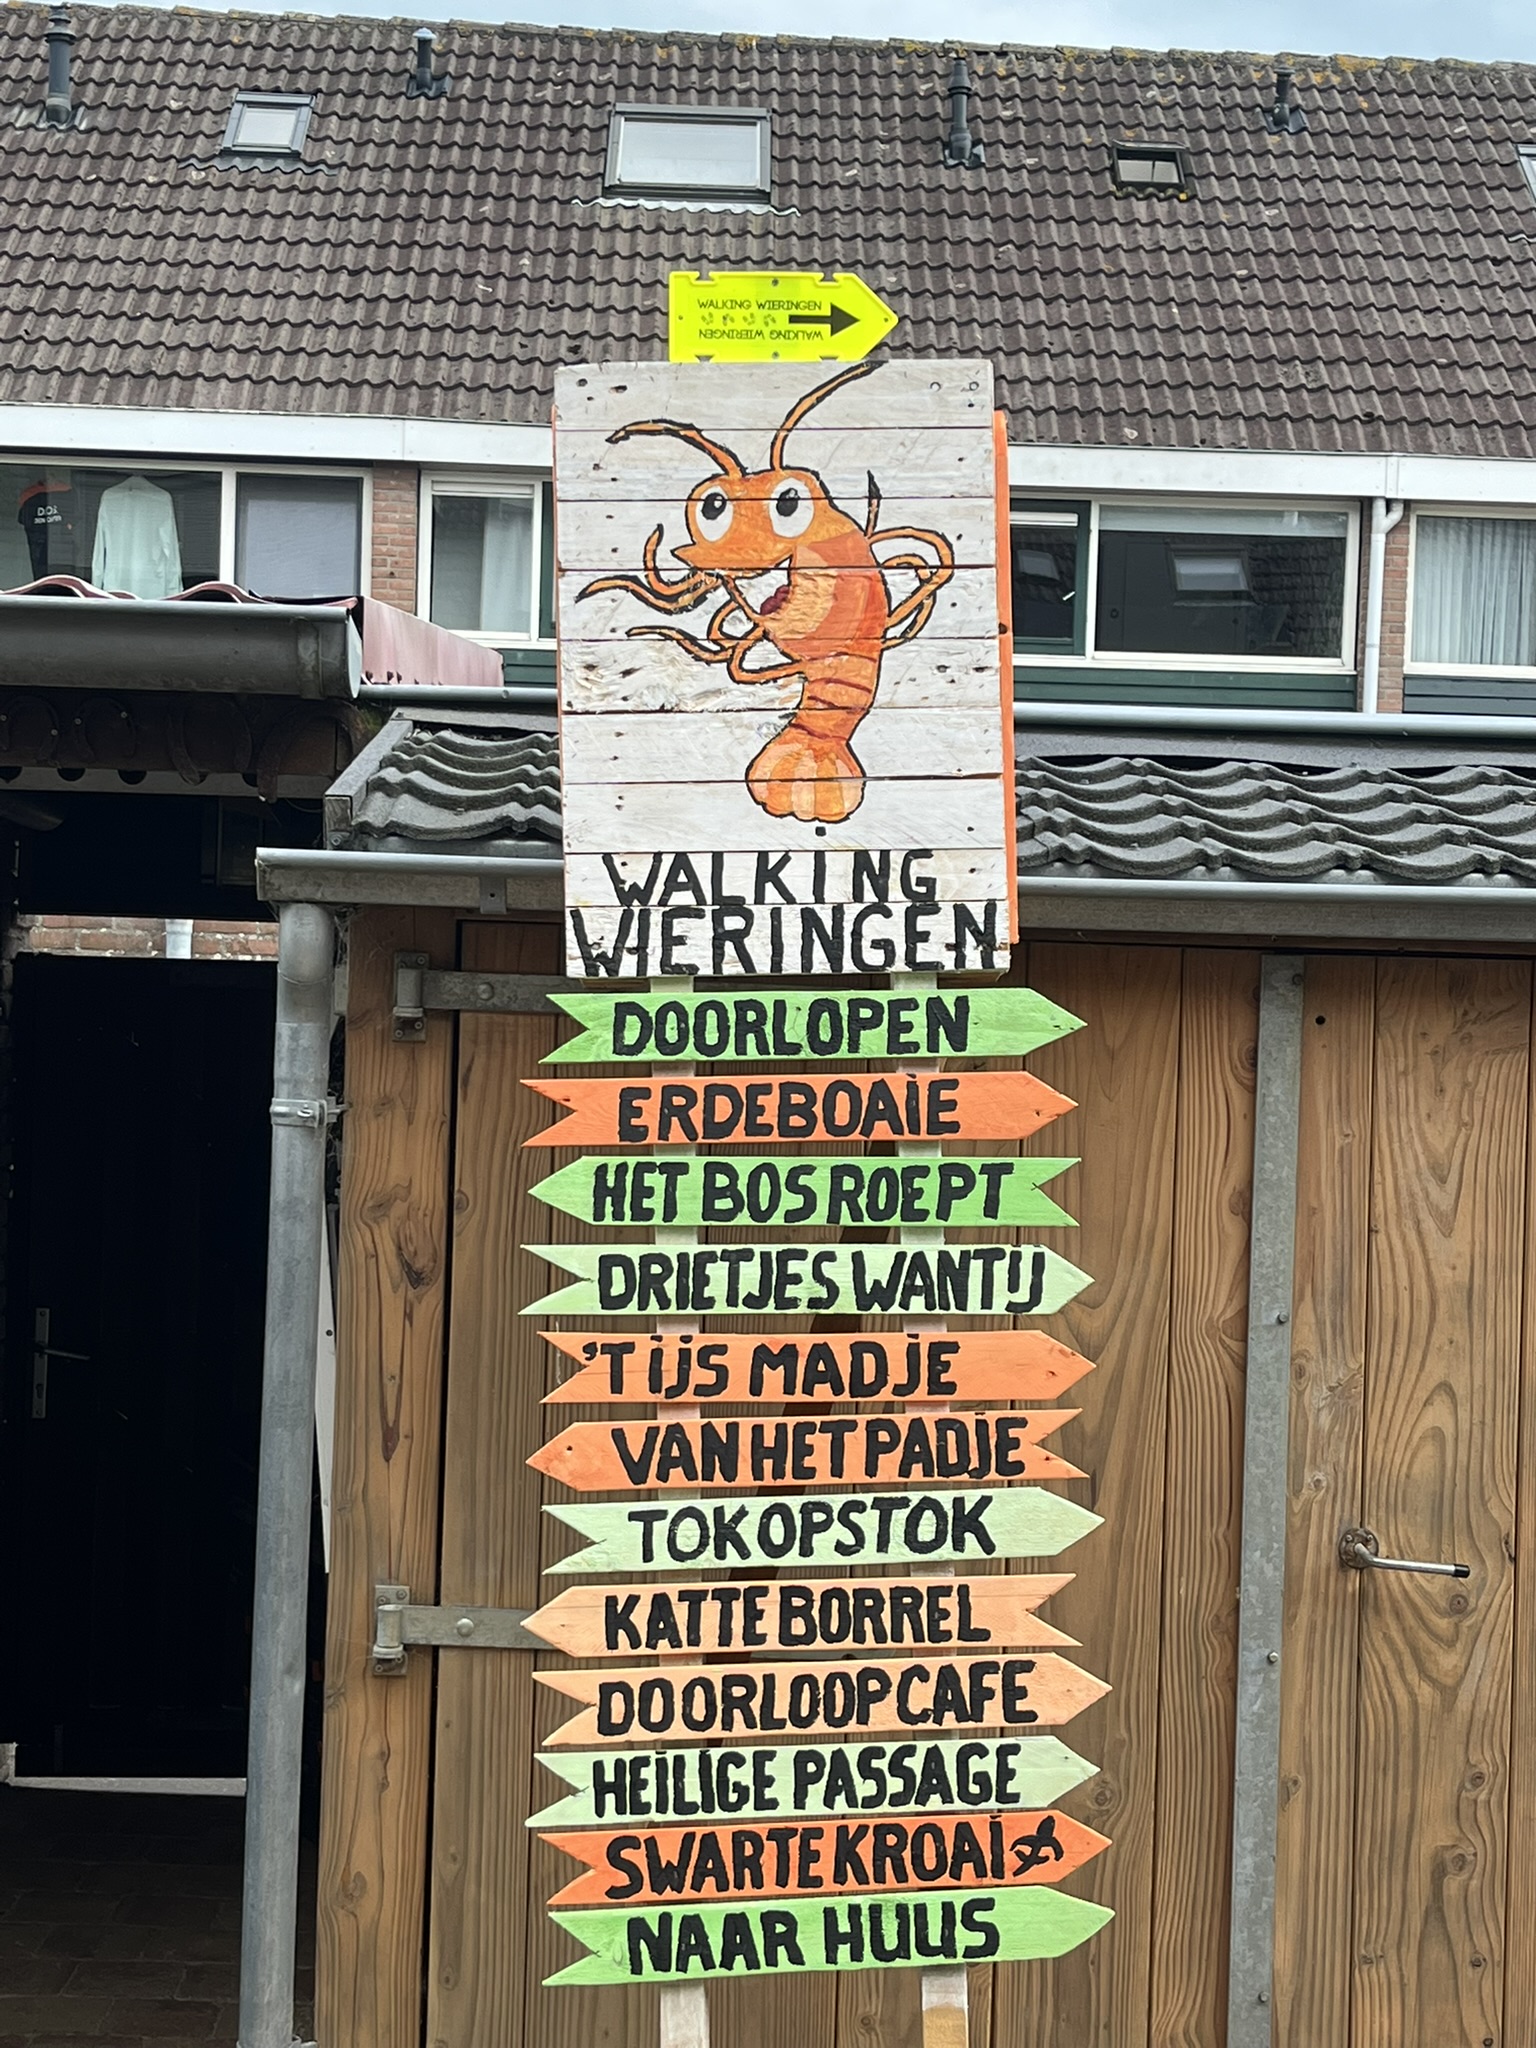 WALKING WIERINGEN
WALKING WIERINGEN
WALKING
WIERINGEN
DOORLOPEN
ERDEBOAIE
HET BOS ROEPT
DRIETJES WANTIJ
'T IJS MADJE
VAN HET PADJE
TOK OP STOK
KATTE BORREL
DOORLOOP CAFE
HEILIGE PASSAGE
SWARTE KROAI
NAAR HUUS